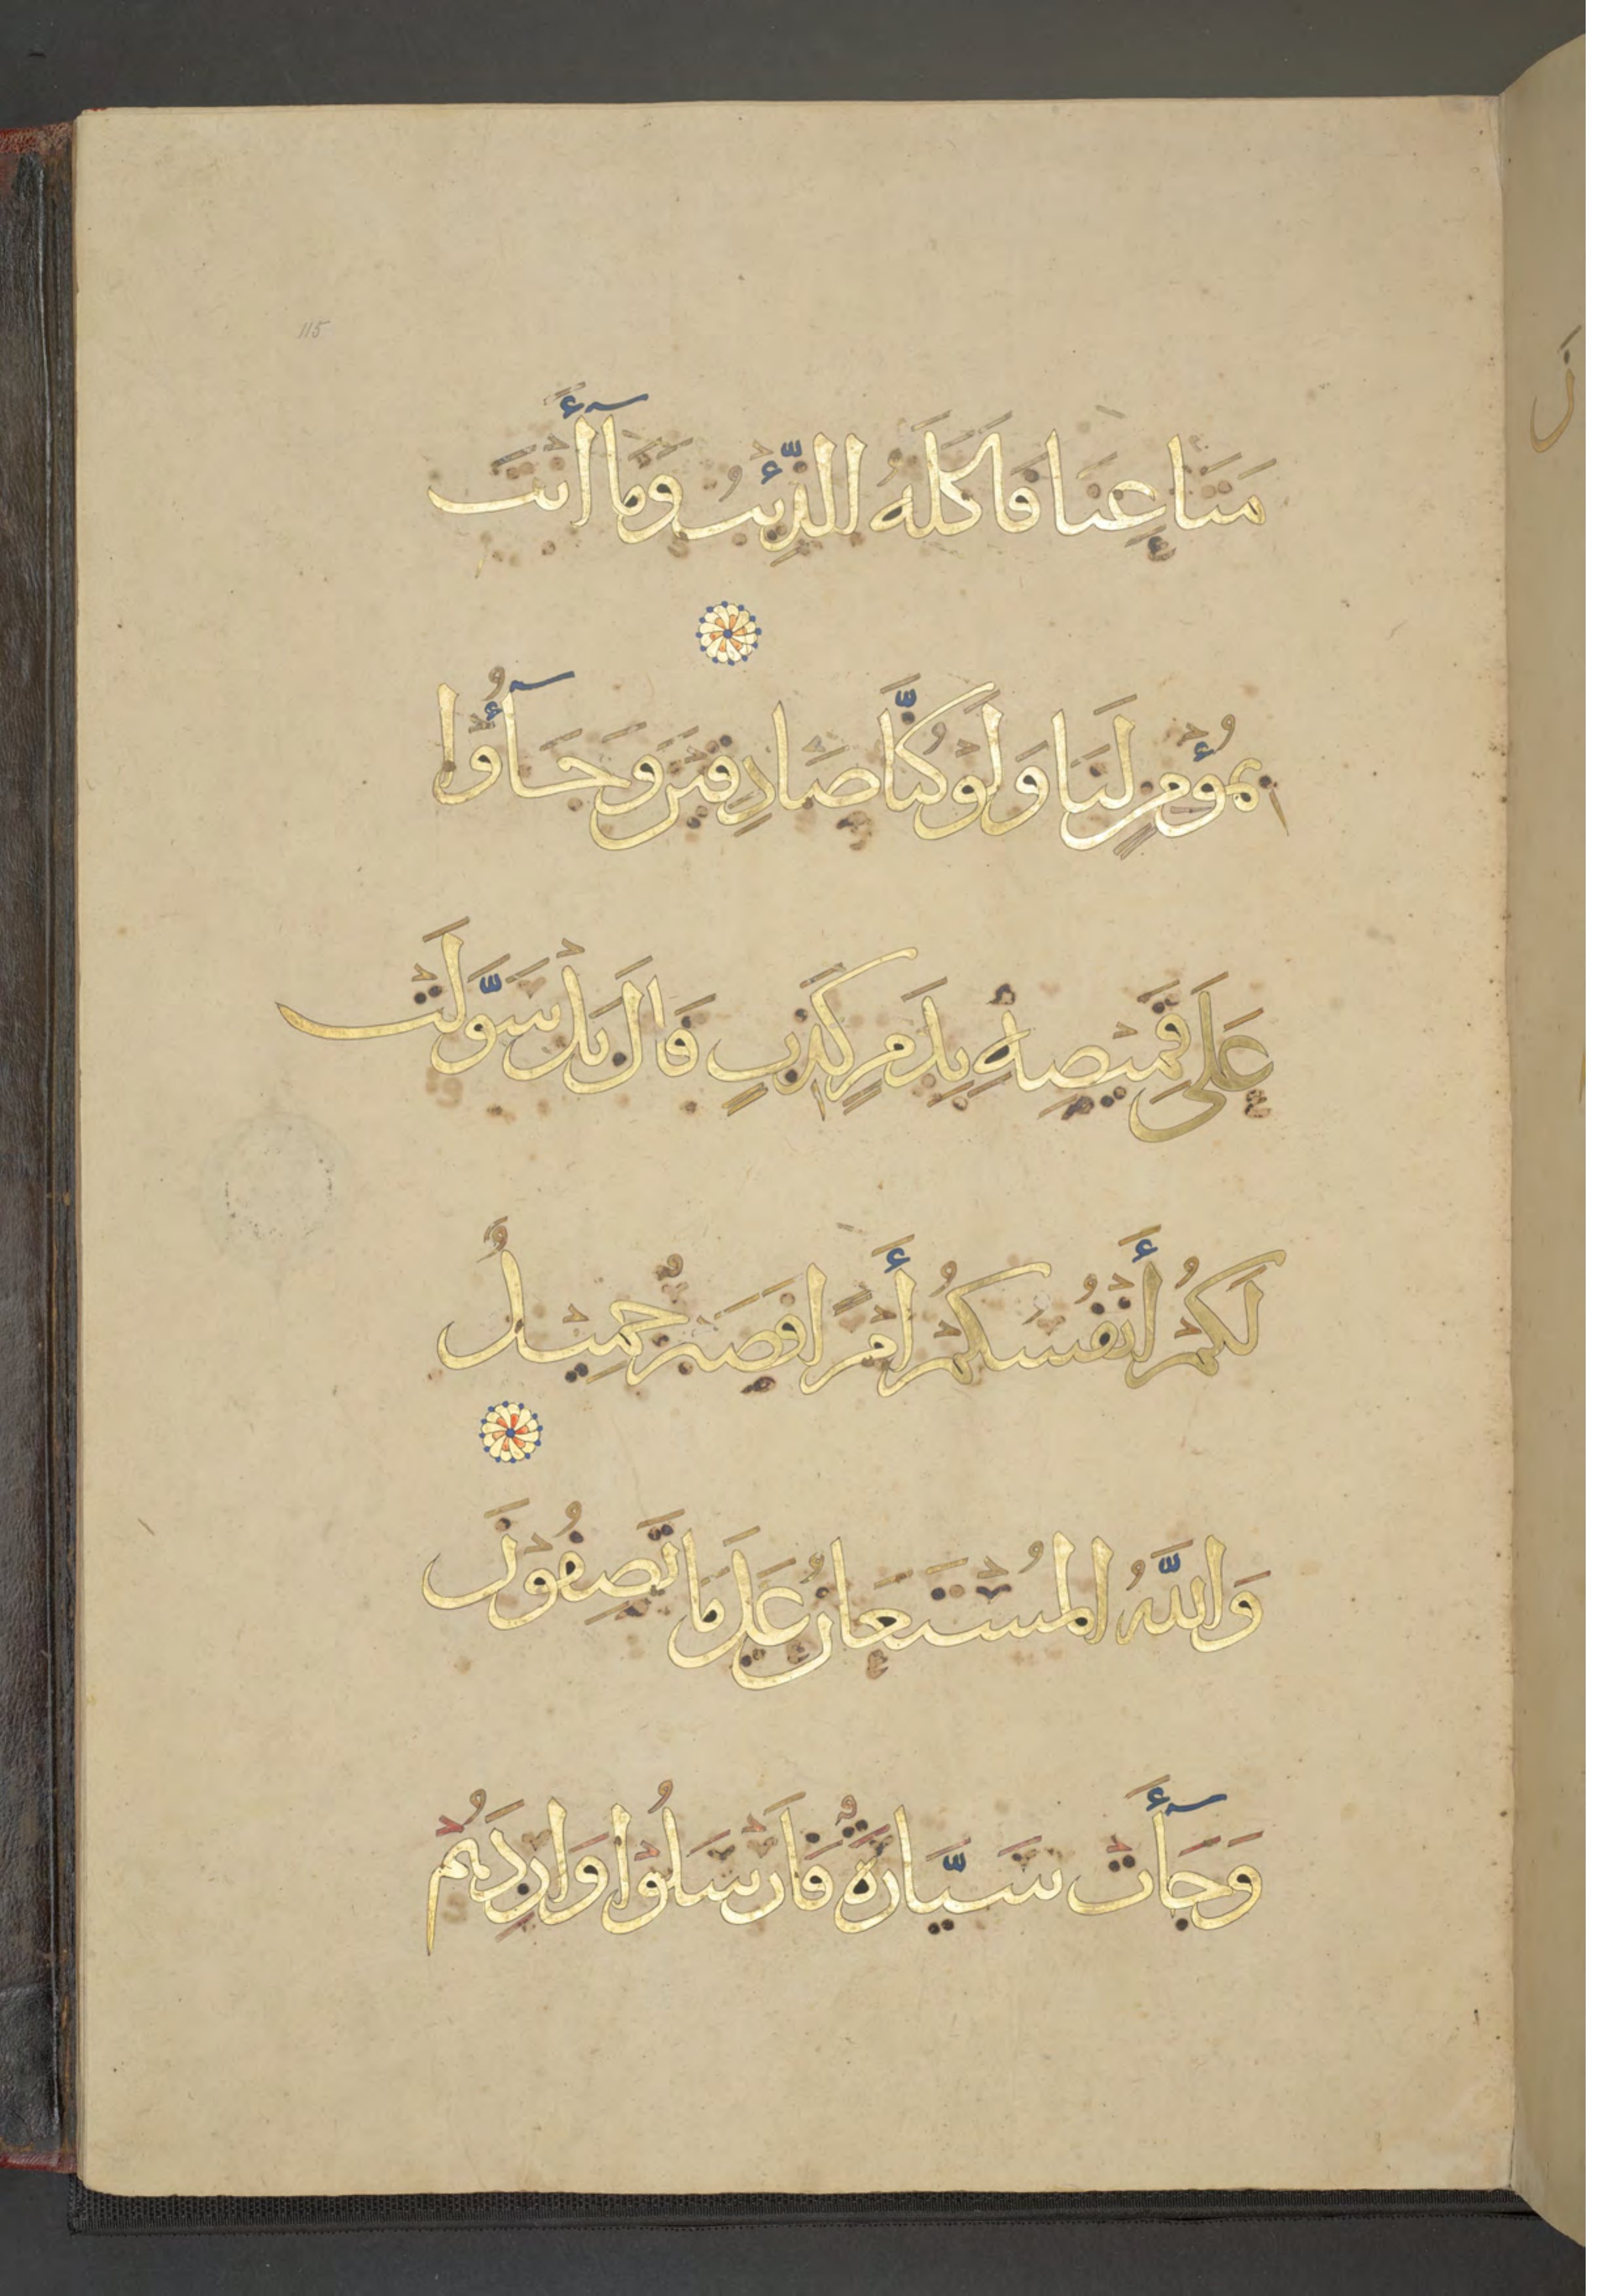 115
مَتَاعِنَا فَأَكَلَهُ الذِّئْبُ وَمَآ أَنْتَ
بِمُؤْمِنٍ لَنَا وَلَوْ كُنَّا صَادِقِينَ وَجَآؤُا
عَلَى قَمِيصِهِ بِدَمٍ كَذِبٍ قَالَ بَلْ سَوَّلَتْ
لَكُمْ أَنْفُسُكُمْ أَمْرًا فَصَبْرٌ جَمِيلٌ
وَاللَّهُ الْمُسْتَعَانُ عَلَى مَا تَصِفُونَ
وَجَآءَتْ سَيَّارَةٌ فَأَرْسَلُوْا وَارِدَهُمْ